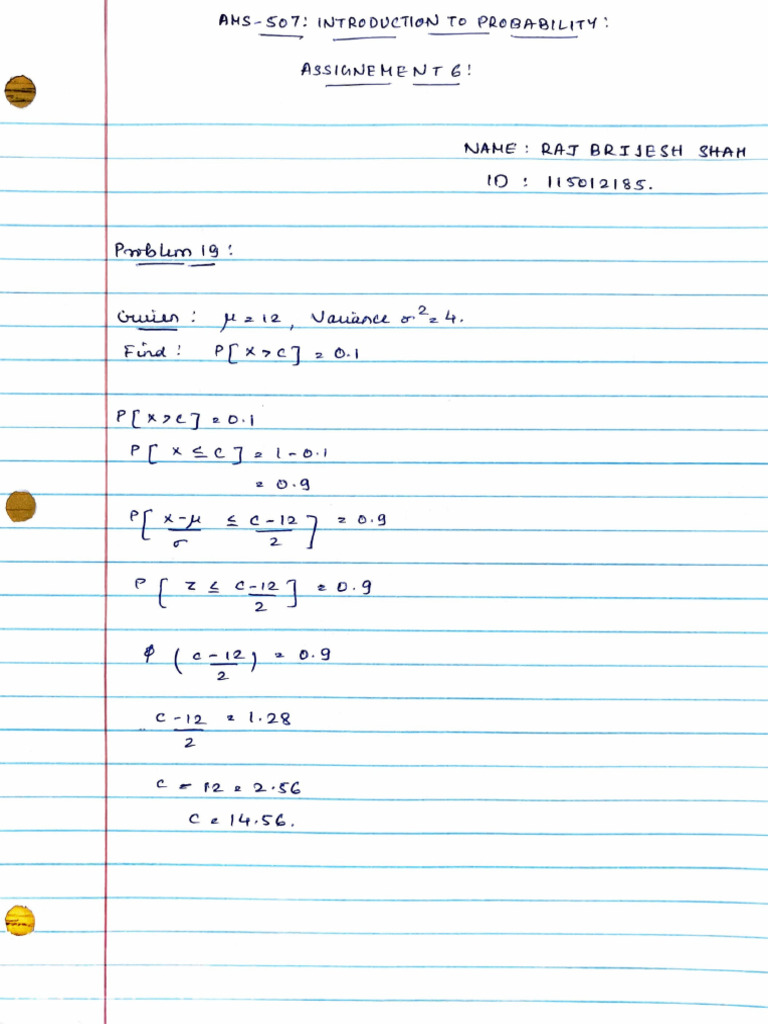 AMS-507: INTRODUCTION TO PROBABILITY:
ASSIGNEMENT 6:
NAME: RAJ BRIJESH SHAH
ID: 115012185.
Problem 19:
Given: μ = 12, Variance σ² = 4.
Find: P[X > C] = 0.1
P[X > C] = 0.1
P[X ≤ C] = 1 - 0.1
= 0.9
P[(X-μ)/σ ≤ (C-12)/2] = 0.9
P[Z ≤ (C-12)/2] = 0.9
ϕ((C-12)/2) = 0.9
(C-12)/2 = 1.28
C - 12 = 2.56
C = 14.56.